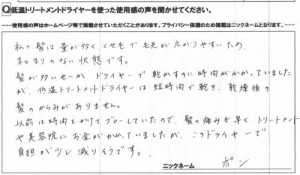 Q低温トリートメントドライヤーを使った使用感の声を聞かせてください。
使用感の声はホームページ等で掲載させていただくことがあります。プライバシー保護のため掲載はニックネームとなります。
私の髪は量が多く くせ毛で 毛先が広がりやすいため
まとまりのない状態です。
髪が多いせいか ドライヤーで乾かすのに時間がかかっていました
が、低温トリートメントドライヤーは 短時間で乾き、乾燥後の
髪のからみがありません。
以前は時間をかけてブローしていたので、髪の痛みも早く トリートメント
や美容院にお金がかかっていましたが、このドライヤーで
負担が少し減りそうです。
ニックネーム ポン